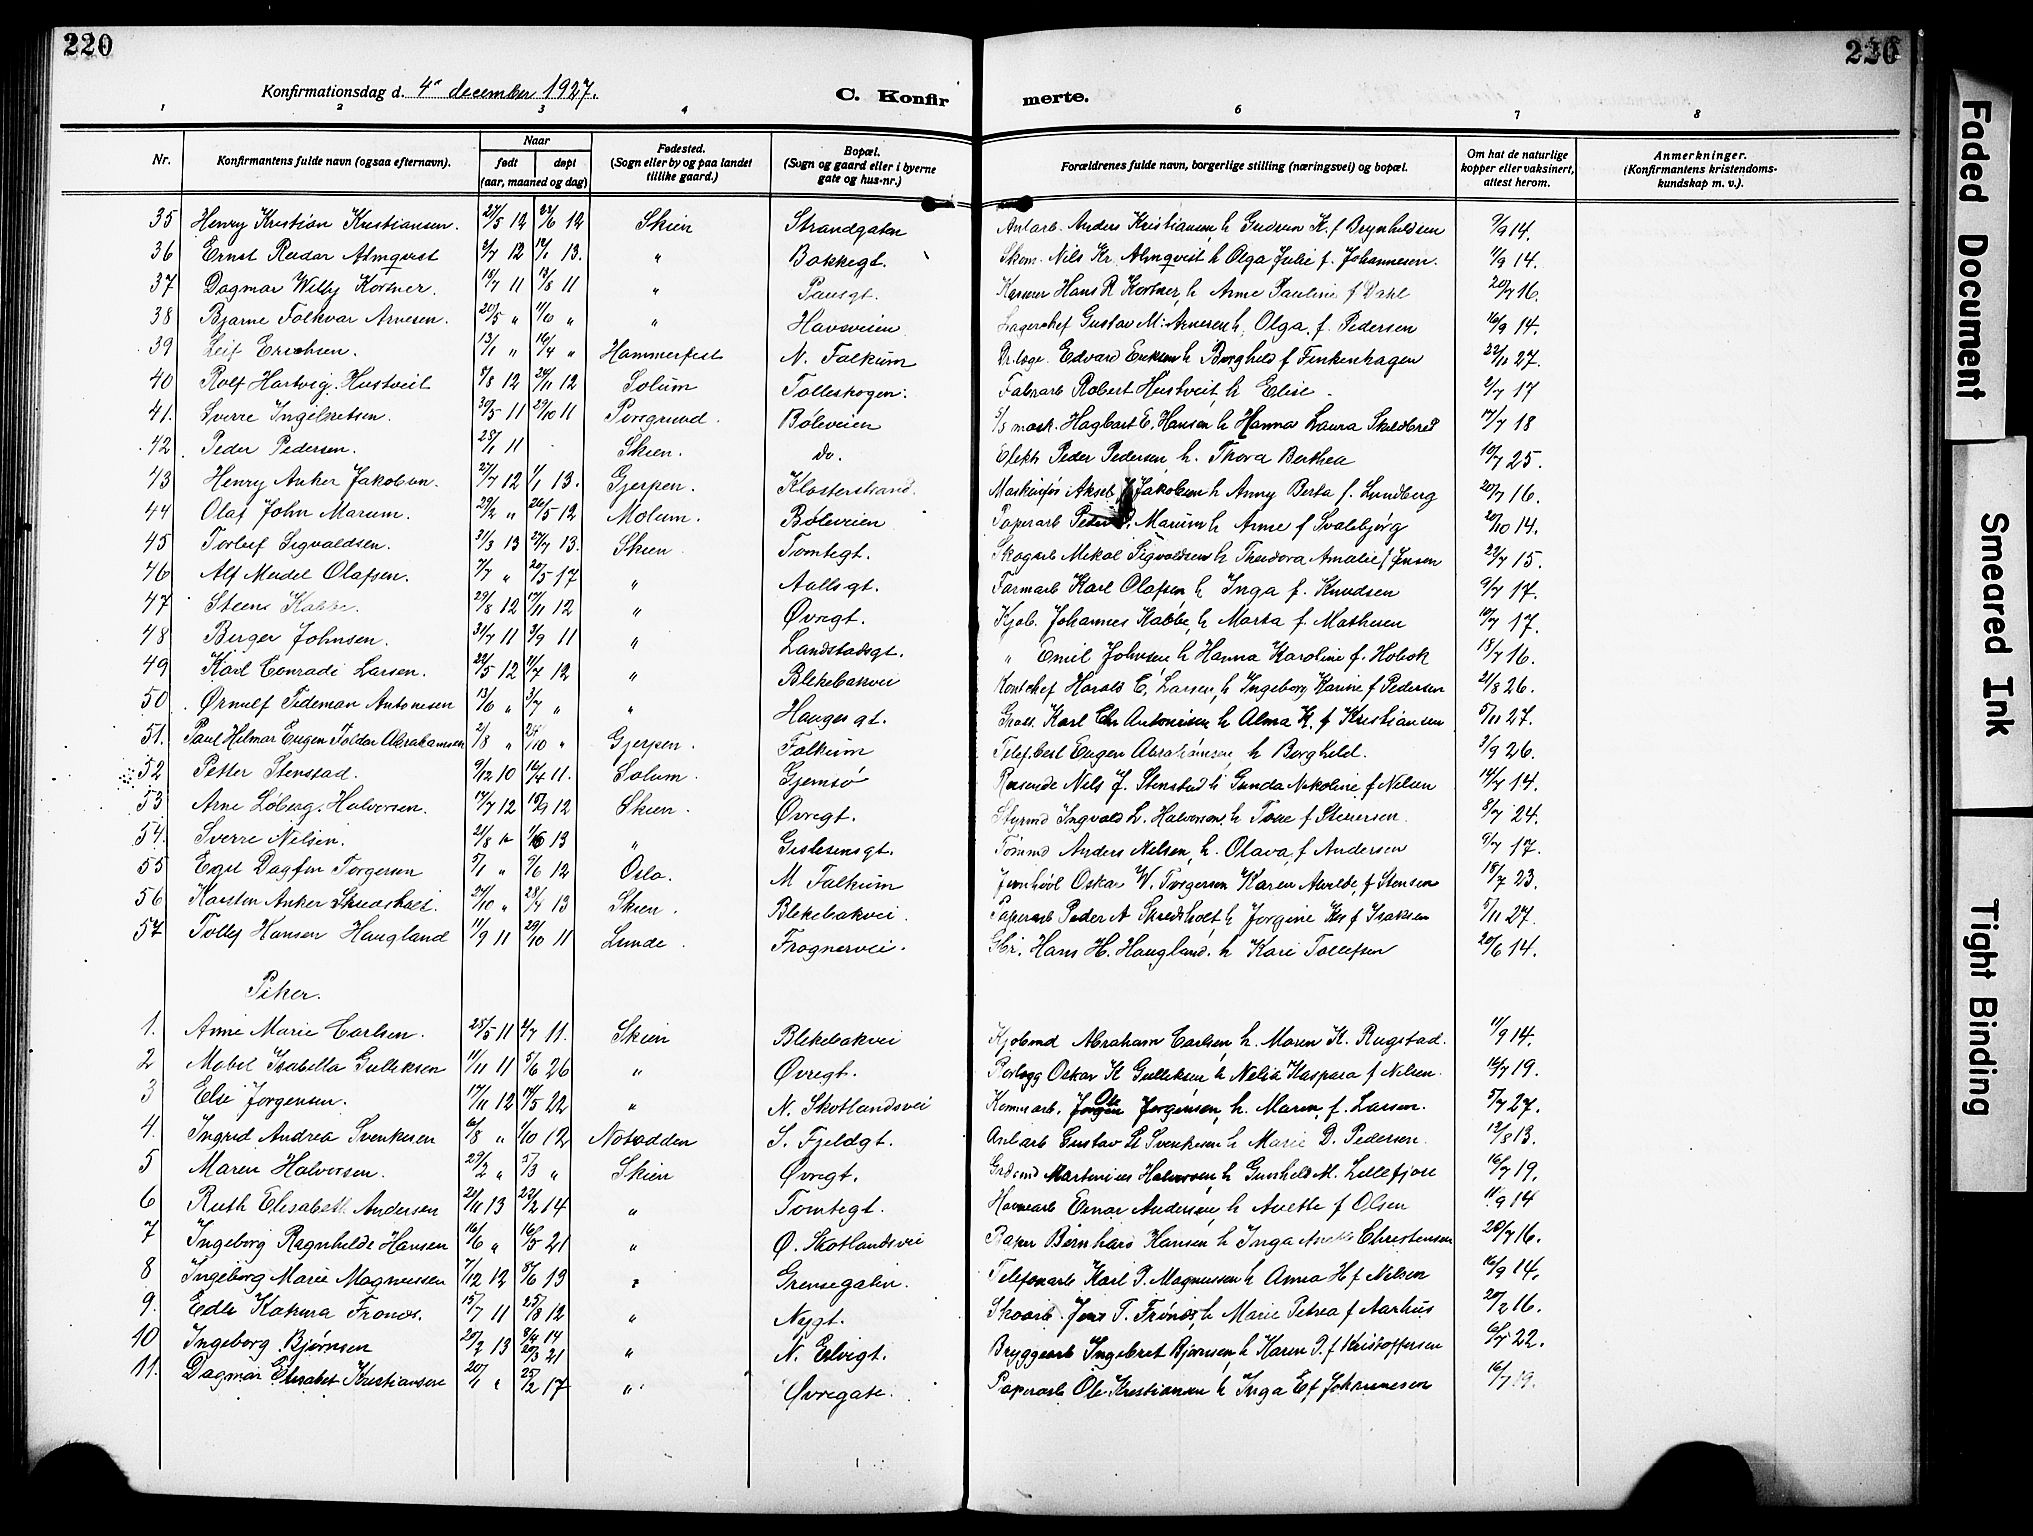 220
220
Konfirmationsdag d. 4de december 1927.
C. Konfir
merte.
1 2 3 4 6 7 8
Nr. Konfirmantens fulde navn (ogsaa efternavn). Naar født døpt (aar, maaned og dag) Fødested. (Sogn eller by og paa landet tillike gaard.) Bopæl. (Sogn og gaard eller i byerne gate og hus-nr.) Forældrenes fulde navn, borgerlige stilling (næringsvei) og bopæl. Om hat de naturlige kopper eller vaksinert, attest herom. Anmerkninger. (Konfirmantens kristendomskundskap m. v.).
35 Henry Kristian Kristiansen. 27/5 12 23/6 12 Skien Strandgaten Anders Kristiansen h Gudrun K. f Brynhildsen 9/9 14.
36 Ernst Reidar Almqvist 3/7 12 13. " Bakkegt. Skom. Nils Kr. Almqvist h Olga Julie f. Johannesen. 11/9 14.
37 Dagmar Willy Kortner. 15/7 11 13/8 11 " Pausgt. Hans R Kortner, h Anne Pauline f Dahl 20/7 16.
38 Bjarne Folkvar Arnesen. 20/5 " 11/10 " " Havaveien Lagerchef Gustav M. Arnesen h. Olga f. Pedersen 16/9 14.
39 Leif Erichsen. 13/1 " 16/4 " Hammerfest N. Falkum Edvard Eriksen h Borghild f Finkenhagen 22/11 27.
40 Rolf Hartvig Hustveit 5/8 12 24/11 12 Solum Tolleskogen. Fabrarb Robert Hustveit h Elise. 2/7 17
41. Sverre Ingebretsen. 30/5 11 29/10 11 Porsgrund. Bøleveien Hagbart E. Hansen h Hanna Laura Skilbred 17/7 18
42. Peder Pedersen. 28/1 11 Skien. do. Elekt Peder Pedersen h. Thora Berthea 10/7 25.
43 Henry Anker Jakobsen. 27/7 12 1/1 13. Gjerpen. Klosterstrand. Aksel Jakobsen h Anny Berta f. Lundberg 20/7 16.
44 Olaf John Marum. 29/2 " 26/5 12 Molum. Bøleveien Paperarb Peder P. Marum h Anne f Svalebjørg 20/10 14.
45 Torleif Sigvaldsen. 31/3 13 27/7 13. Skien. Tomtegt. Skogarb Mikal Sigvaldsen h Theodora Amalie f Jensen 22/7 15.
46 Alf Meidel Olafsen. 7/7 " 20/5 17 " Aallsgt. Farmarb Karl Olafsen h Inga f. Knudsen 9/7 17.
47 Steene Kabbe. 29/8 12 17/11 12 " Øvregt. Kjøb. Johannes Kabbe, h Marta f. Mathesen 10/7 17.
48 Berger Johnsen. 31/7 11 3/9 11 " Landstadsgt. " Emil Johnsen, h Hanna Karoline f. Holok 18/7 16.
49 Karl Conradi Larsen. 22/5 12 11/7 12 " Blekebakvei Kontchef Harald C. Larsen, h Ingeborg Karine f Pedersen 21/8 26.
50. Ørnulf Tideman Antonisen 13/6 " 3/7 " " Haugesgt. Gross. Karl Chr Antonisen h Alma K. f Kristiansen 5/11 27.
51. Paul Hilmar Eugen Foldar Abrahamsen 2/8 " 24/10 " Gjerpen. Falkum Telef.best Eugen Abrahamsen h Borghild. 3/9 26.
52 Petter Stenstad. 9/12 10 16/4 11. Solum. Gjemsø Reisende Nils J. Stenstad h Gunda Nikoline f Nilsen 14/7 14.
53 Arne Løberg Halvorsen. 17/7 12 15/9 12 Skien. Øvregt. Styrmd Ingvald L. Halvorsen h Tone f Steiersen. 8/7 24.
54. Sverre Nilsen. 21/8 12 1/6 13 " Gislesensgt. Tømmd Anders Nilsen, h. Olava, f Andersen 9/7 17.
55 Egil Dagfin Torgersen 5/1 " 9/6 12 Oslo. M Falkum Oskar W. Torgersen Karen Alvilde, f Stensen 18/7 23.
56 Karsten Anker Skredsholt. 24/10 " 28/4 13 Skien. Blekebakvei. Paperarb Peder A Skredsholt h Jorgine Kr f Isaksen 5/11 27.
57 Tollef Hansen Haugland 11/9 11 29/10 11 Lunde. Frognervei. Gbr. Hans H. Haugland. h Kari Tollefsen 20/6 14.
Piker.
1. Anne Marie Carlsen. 25/5 11 2/7 11. Skien Blekebakvei Kjøbmd Abraham Carlsen h. Maren K. Rugstad. 11/9 14.
2 Mabel Isabella Gulliksen 11/11 11 5/6 26 " Øvregt. Oskar K Gulliksen h Nelia Kaspara f Nilsen. 16/7 19.
3 Else Jørgensen. 17/11 12 14/5 22 " N. Skotlandsvei Jørgen Ole Jørgensen, h. Maren, f. Larsen. 5/7 27.
4. Ingrid Andrea Svenkesen 6/8 " 1/10 12 Notodden S. Fjeldgt. Anlarb Gustav St Svenkesen h Marie D. Pedersen. 12/8 13.
5 Maren Halvorsen. 29/2 " 5/3 " Skien Øvregt. Martinius Halvorsen h Gunhild M. Lillefjære 16/7 19.
6 Ruth Elisabeth Andersen 20/11 13 22/2 14 " Tomtegt. Havnearb Einar Andersen, h Anette f Olsen 11/9 14
7 Ingeborg Ragnhilde Hansen 16/6 " 16/5 21 " Ø. Skotlandsvei Paper Bernhard Hansen h Inga Christensen 20/7 16.
8 Ingeborg Marie Magnussen 7/12 12 8/6 13 " Grensegaten. Telefonarb Karl P. Magnussen h Anna H f Nilsen 16/9 14.
9. Edle Katrina Frønes. 15/7 11 25/8 12 " Nygt. Skoarb. Jens T. Frønes, h Marie Petrea f Aarhus 20/2 16.
10 Ingeborg Bjørnsen 20/2 13 8/4 14 20/3 21 " N. Elvigt. Bryggearb Ingebret Bjørnsen h Karen P. f Kristoffersen 6/7 22.
11. Dagmar Elisabet Kristiansen 20/1 " 25/2 17 " Øvregate. Paperarb Ole Kristiansen h Inga E f Johannesen 16/7 19.
Faded Document
Smeared Ink
Tight Binding